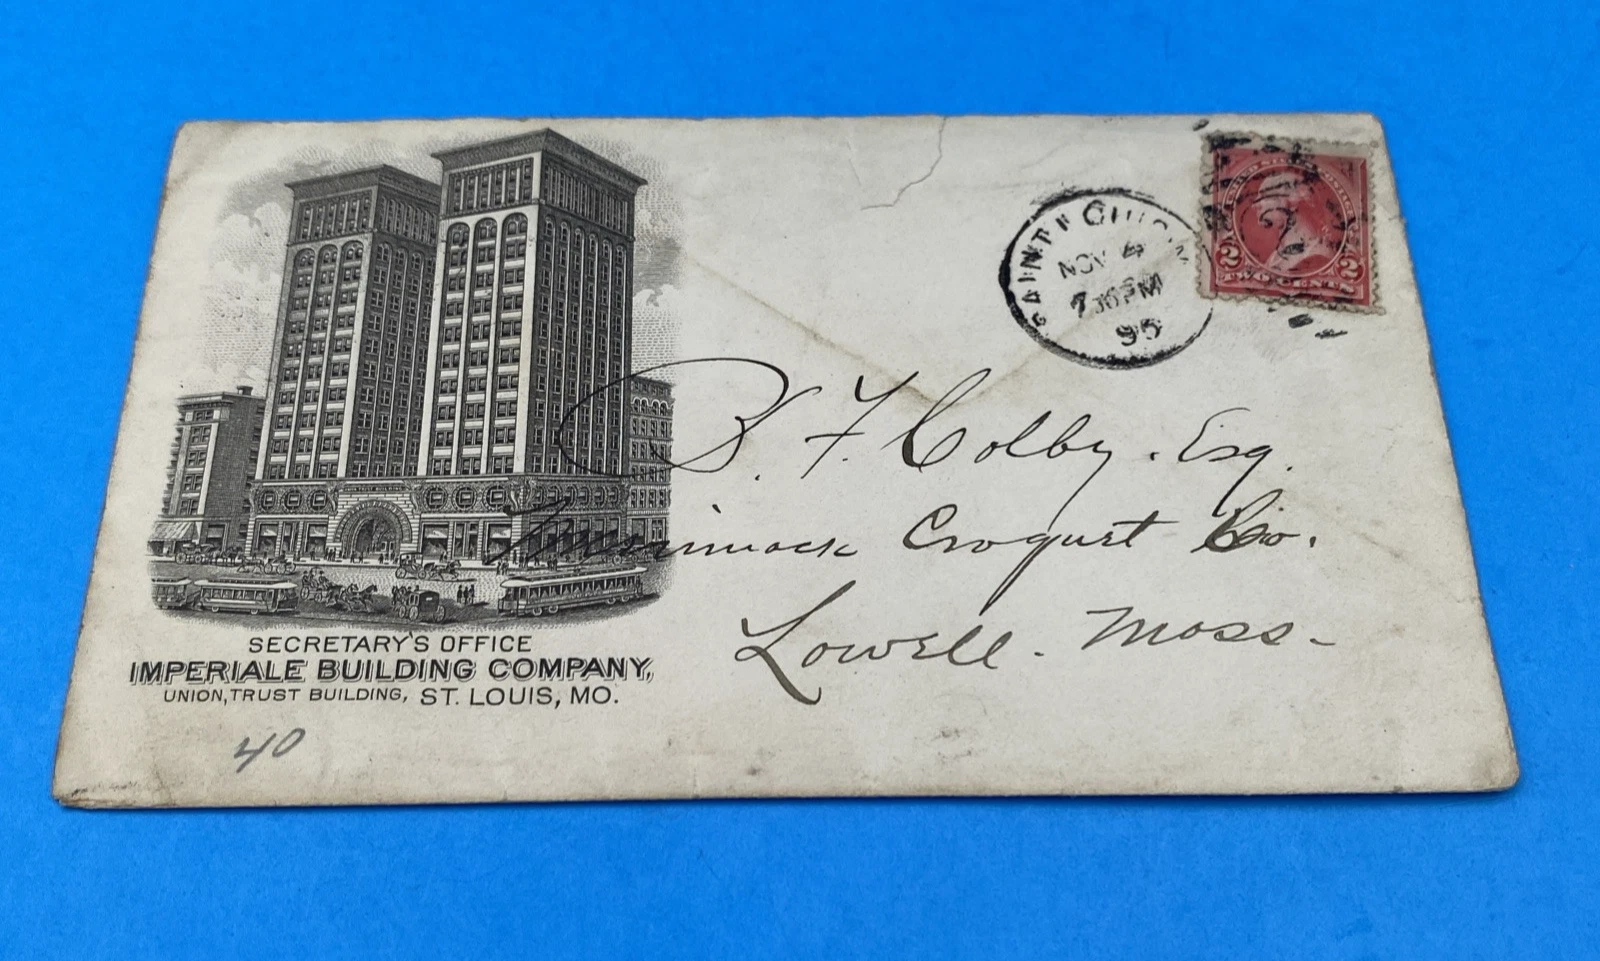 SAINT LOUIS, M
NOV 4
7 30 PM
95
2 2
TWO CENTS
B. F. Colby. Esq.
Merrimack Croquet Co.
Lowell. Mass-
SECRETARY'S OFFICE
IMPERIALE BUILDING COMPANY,
UNION, TRUST BUILDING, ST. LOUIS, MO.
40